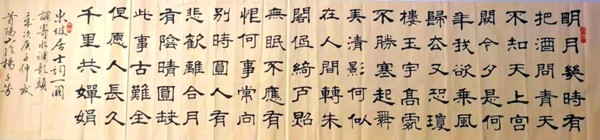 明月幾時有
把酒問青天
不知天上宮
闕今夕是何
年我欲乘風
歸去又恐瓊
樓玉宇高處
不勝寒起舞
弄清影何似
在人間轉朱
閣低綺戶照
無眠不應有
恨何事常向
別時圓人有
悲歡離合月
有陰晴圓缺
此事古難全
但願人長久
千里共嬋娟
東坡居士詞一闋
調寄水調歌頭
歲次庚子仲秋
首陽山陰楊子芳